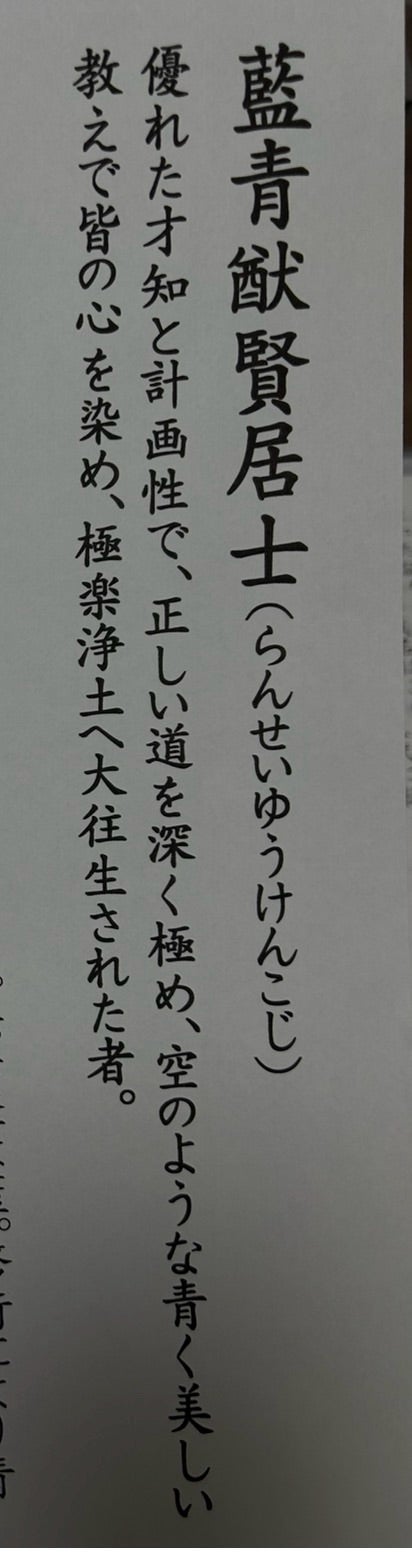 藍青猷賢居士(らんせいゆうけんこじ)
優れた才知と計画性で、正しい道を深く極め、空のような青く美しい
教えで皆の心を染め、極楽浄土へ大往生された者。